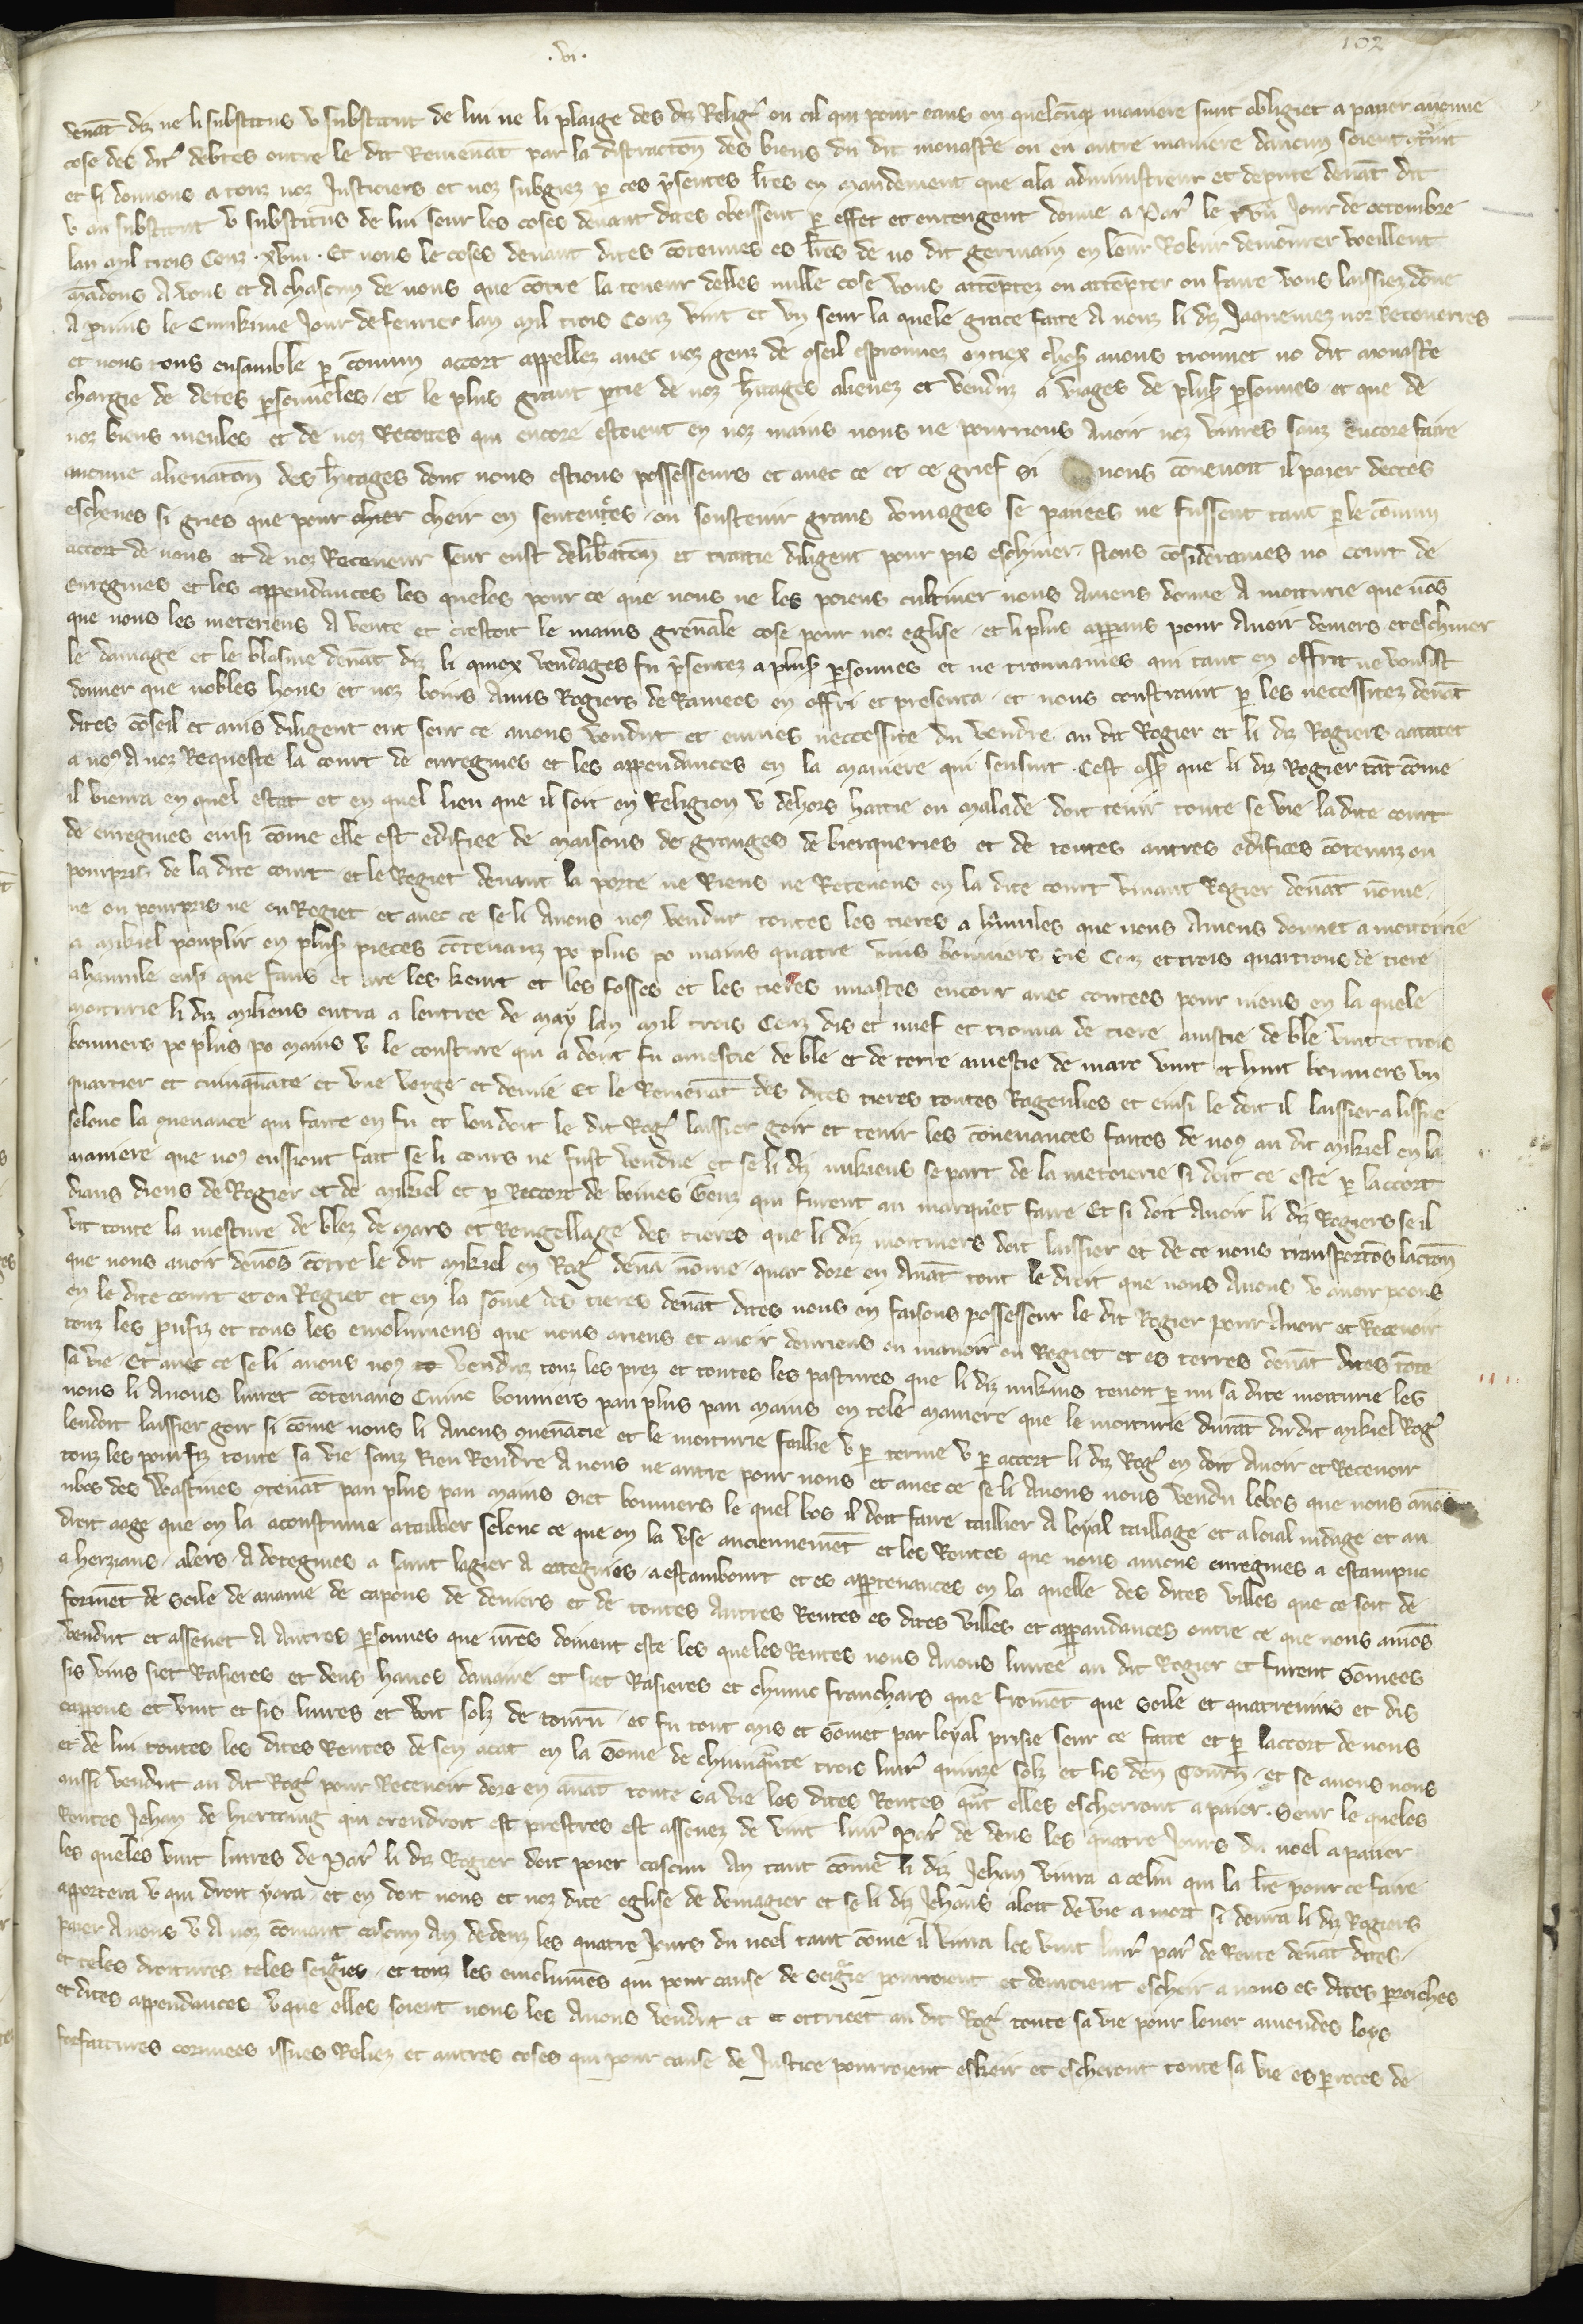 .vi.
102
venāt diz ne li substitus v substitut de lui ne li plaige des diz Relig' ou cil qui pour eaus en quelcūq maniere sunt obligiet a paier aucune
cose des dit' debtes outre le dit Remenāt par la distractōn des biens du dit monast'e ou en autre maniere daucun soient
et si donnons a touz noz Justiciers et noz subgiez p ces p'sentes l'res en mandement que ala administreur et depute devāt dit
v au substitut v substitus de lui seur les coses devant dites obeissent p effet et entengent donne a Par' le xviii Jour de octembre
lan mil trois Cenz .xviii. Et nous le coses devant dites cōtenues es l'res de no dit germain en leur Robur demōrer voeillent
mādons A vous et A chascun de vous que cōtre la teneur delles nulle cose vous attēptez ou attēpter ou faire vous laissiez donne
A p'uins le Cuinkime Jour de fevrier lan mil trois Cenz vint et vn seur la quele grace faite A nouz li diz Jaquemez noz Receverres
et nous tous ensamble p cōmun accort appellez avec noz genz de cōseil esprouvez en tiex choses avons trouvet no dit monast'e
chargie de detes psoneles et le plus grant ptie de noz h'itages alienez et vendiz a viages de plus' psonnes et que de
noz biens meules et de noz Recettes qui encore estoient en noz mains nous ne pourrions Avoir noz vivres sanz encore faire
aucune alienatōn des h'itages dont nous estions possesseurs et avec ce et ce grief si nous cōvenoit il paier dectes
eschues si gries que pour cheir en sentences ou soustenir grans domages se paiees ne fussent tant p le cōmun
accort de nous et de noz Receveur seur eust delib'atōn et traitie diligent pour pis eschiver. Nous cōsiderames no court de
enregnies et les appendances les queles pour ce que nous ne les poiens cultiver nous Aviens donne A moiturie que nos
que nous les meteriens A vente et cestoit le mains grevable cose pour noz eglise et li plus apparans pour Avoir deniers et eschiver
le damage et le blasme devāt diz li quiex vendages fu p'sentez a plus' psonnes et ne trouvames qui tant en offrit ne vousist
donner que nobles hons et noz boins Amis Rogiers de Ramees en offri et presenta et nous constraint p les necessitez devāt
dites cōseil et avis diligent eut seur ce avons vendut et eumes neccessite du vendre au dit Rogier et li diz Rogiers acatatet
a no9 A noz Requeste la court de enregnies et les appendances en la maniere qui sensuit. Cest assav' que li diz Rogier tāt cōme
il vivera en quel estat et en quel lieu que il soit en Religion v dehors haitie ou malade doit tenir toute se vie la dite court
de enregnies ensi cōme elle est edifiee de maisons de granges de bierqueries et de toutes autres edifices cōtenuz ou
pourpris de la dite court et le Regiet devant la porte ne Riens ne Retenons en la dite court vivant Rogier devāt nōme
ne ou pourpris ne ou Regiet et avec ce se li Avons no9 vendut toutes les tieres a hanules que nous Aviens donnet a moiterie
a mikiel pouplir en plus' pieces cōtenanz po plus po mains quatre vins bonniers dis Cenz et trois quartrons de tiere
ahanule ensi que fains et ure les keurt et les fosses et les tieres wastes encour avec contees pour niens en la quele
moiturie li diz mikiens entra a lentree de may lan mil trois Cenz dis et nuef et trouva de tiere amestie de ble vint et trois
bonniers po plus po mains v le cousture qui a dont fu amestie de ble et de terre amestie de marc vint et huit bonniers vn
quartier et cuinquāte et vne verge et demie Et le Remenāt des dites tieres toutes Ragenlies et ensi le doit il laissier a lissue
selonc la cōvenance qui faite en fu et len doit le dit Rog' laissier goir et tenir les cōvenances faites de no9 au dit mikiel en la
maniere que no9 eussiont fait se li cours ne fust vendue et se li diz mikiens se part de la meterie si doit ce este p laccort
dians diens de Rogier et de mikiel et p Reccort de boines Genz qui furent au marquet faire Et si doit Avoir li diz Rogiers se il
vit toute la mesture de blez de mars et Rengellage des tieres que li diz moituiers doit laissier et de ce nous transportōs lactōn
que nous avoir devōs cōtre le dit mikiel en Rog' devā nōme. quar dore en Avāt tout le droit que nous Avons v avoir poons
en le dite court et ou Regiet et en la sōme des tieres devāt dites nous en faisons possesseur le dit Rogier pour Avoir et Recevoir
touz les p'ufiz et tous les emoluniens que nous ariens et avoir deuriens ou manoir ou Regiet et es terres devāt dites toute
sa vie. Et avec ce se li avons no9 venduz touz les prez et toutes les pastures que li diz mikius tenoit p mi sa dite moiturie les
nous li Avons livret cōtenans Cuinc bonniers pau plus pau mains en tele maniere que le moiturie durāt du dit mikiel Rog'
lendoit laissier goir si cōme nous li Avons cōvenācie et le moiturie faillie v p terme v p accort li diz Rog' en doit Avoir et Recevoir
touz les pourfiz toute sa vie sanz Rien Rendre A nous ne autre pour nous et avec ce se li Avons nous vendu lebos que nous avōs
ubos des Wastines cōtenāt pau plus pau mains siet bonniers le quel bos il doit faire taillier A loyal taillage et a loial widage et au
droit aage que on la acoustume a taillier selonc ce que on la use anciennemēt et les Rentes que nous aviens enregnies a estampuc
a herzians. alers. A dotegnies a saint lagier A ectegnies. A estambourt et es appertenances en la quelle des dites villes que ce soit de
formēt de soile de avaine de capons de deniers et de toutes Autres Rentes es dites villes et appandances outre ce que nous aviōs
vendut et assenet A Autres psonnes que iures doivent este les queles Rentes nous Avons livree au dit Rogier et furent sōmees
sis vins siet Rasieres et deus havos davaine et siet Rasieres et chiunc franchars que fromēt que soile et quatrevins et dis
cappons et vint et sis livres et wit solz de tourn' et fu tout mis et sōmet par loyal prisie seur ce faite et p laccort de nous
et de lui toutes les dites Rentes de sen acat en la sōme de chiunquāte trois livr' quinze solz et sis den' tourn' et se avons nous
aussi vendut au dit Rog' pour Recevoir dore en avāt toute sa vie les dites Rentes quāt elles escherront a paier. Seur le queles
Rentes Jehan de hierting qui orendroit est prestres est assenez de vint livr' Par' de dens les quatre Jours du noel a paier
les queles vint livres de Par' li diz Rogier doit poier cascun An tant cōme li diz Jehan vivra a celui qui la l're pour ce faire
apportera v qui droit yara et en doit nous et noz dite eglise de demagier et se li diz Jehans aloit de vie a mort si devra li diz Rogiers
paier Avons v A noz cōmant cascun An dedenz les quatre Jours du noel tant cōme il vivra les vint livr' par' de Rente devāt dites.
et teles droitures teles seignories et touz les emolumēs qui pour cause de seignorie pourroient et devroient escheir a nous es dites paroiches
et dites appendances v que elles soient nous les Avons vendut et et ottriiet au dit Rog' toute sa vie pour lever amendes loys
forfaitures cormees issues Reliez et autres coses qui pour cause de Justice pourroient eskeir et escheront toute sa vie es paroces de